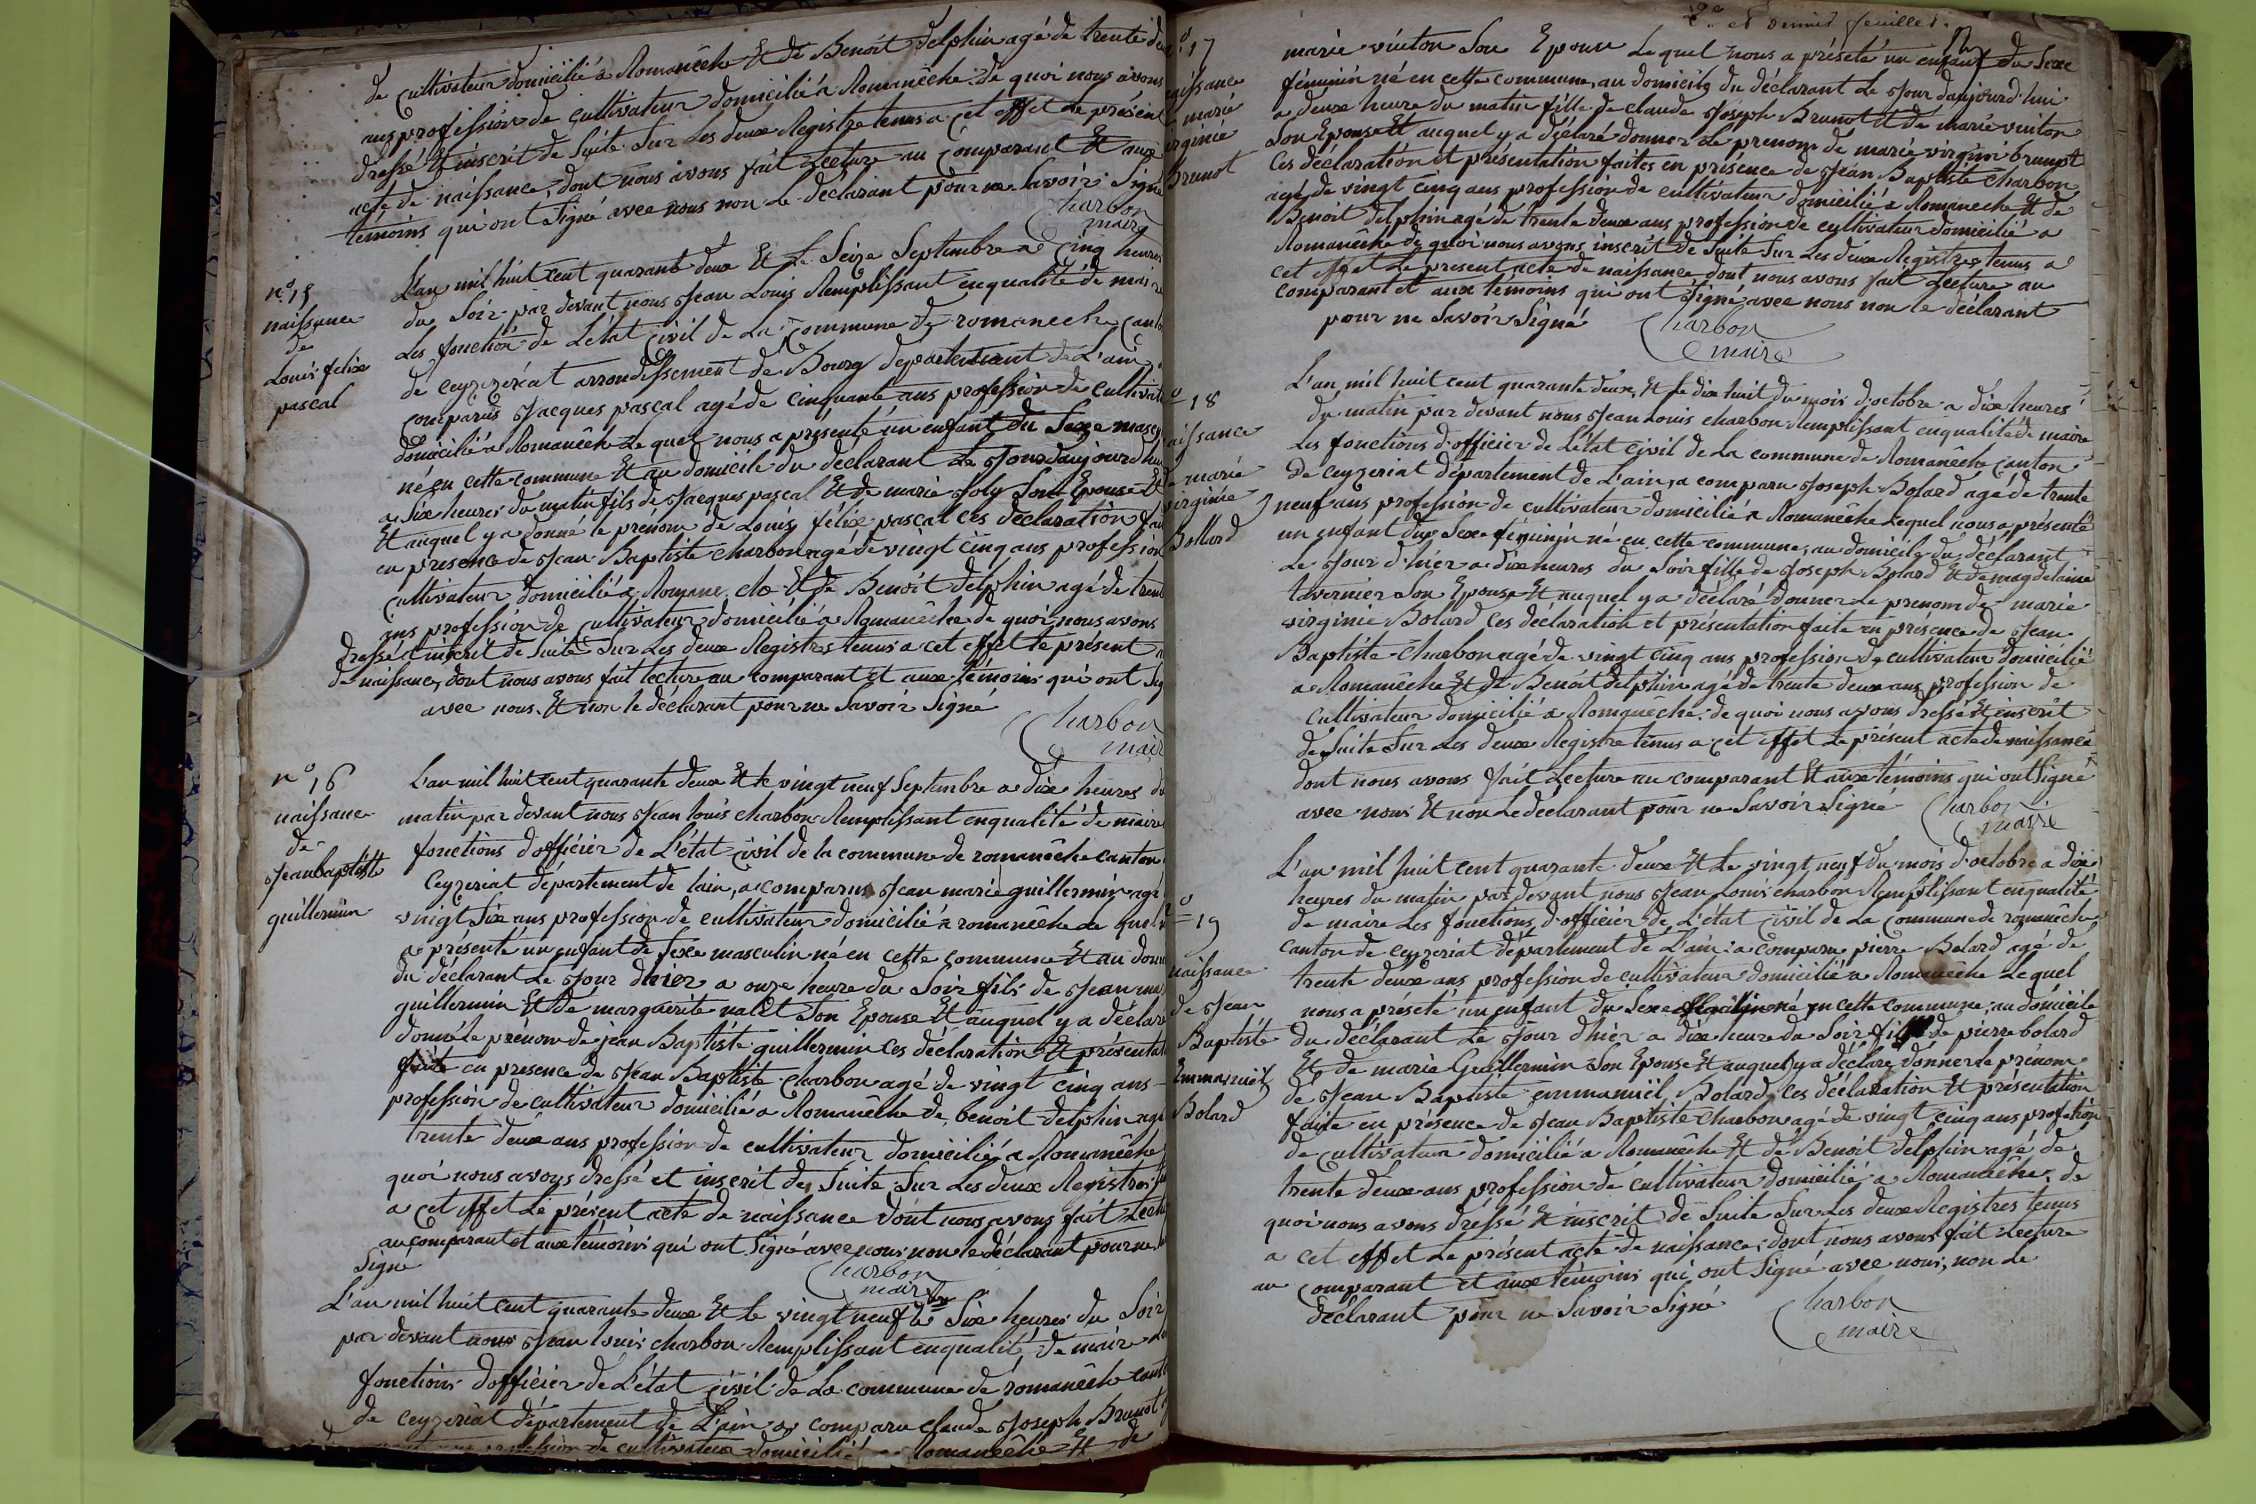 de cultivateur domicilié a Romanêche Et de Benoit Delphin agé de trente
ans profession de cultivateur domicilié a Romanêche de quoi nous avons
dressé Et inscrit de Suite Sur Les deux Registre tenus a cet effet Le présent
acte de naissance, dont nous avons fait Lecture au comparant Et aux
témoins qui ont Signé avec nous non Le déclarant pour ne Savoir Signé
Charbon
maire
n° 15
naissance
de
Louis felix
pascal
L'an mil huit cent quarante deux Et Le Seize Septembre a cinq heures
du Soir par devant nous Jean Louis Remplissant enqualité de maire
Les fonction de L'état civil de La commune de romaneche
de ceyzeriat arrondissement de Bourg departement de L'ain
comparus Jacques pascal agé de cinquante ans profession de
domicilié a Romanêch Le quel nous a présenté un enfant du Sexe
né en cette commune Et au domicile du déclarant Le Jour daujourdhui
a Six heures du matin fils de Jacques pascal Et de marie Joly Son Epouse Et
Et auquel y a donné le prénom de Louis félix pascal ces déclaration
en presence de Jean Baptiste charbon agé de vingt cinq ans profession
cultivateur domicilié a Romane che Et de Benoit Delphin agé de
ans profession de cultivateur domicilié a Romanêche de quoi nous avons
dressé Et inscrit de Suite Sur Les deux Registres tenus a cet effet le présent
de naissance, dont nous avons fait lecture au comparant Et aux témoins qui ont
avec nous Et non le déclarant pour ne Savoir Signé
Charbon
n° 16
naissance
de
Jean baptiste
guillermin
L'an mil huit cent quarante deux Et le vingt neuf Septembre a dix heures du
matin par devant nous Jean Louis charbon Remplissant enqualité de maire
fonctions d'officier de L'état civil de la commune de romanêche canton
Ceyzeriat département de lain, a comparus Jean marie guillermin agé
vingt Six ans profession de cultivateur domicilié a romanêche Le quel
a presenté un enfant de Sexe masculin né en cette commune Et au
du déclarant Le Jour dhier a onze heure du Soir fils de Jean
guillermin Et de marguerite nalet Son Epouse Et auquel y a déclaré
donné le prénom de jean Baptiste guillermin Ces déclaration Et
faite en presence de Jean Baptiste charbon agé de vingt cinq ans
profession de cultivateur domicilié a Romanêche de benoit delphin agé
trente deux ans profession de cultivateur domicilié a Romanêche
quoi nous avons dressé et inscrit de Suite Sur Les deux Registres
a cet effet Le présent acte de naissance dont nous avons fait
au comparant et aux témoins qui ont Signé avec nous non le déclarant pour ne
Signé
Charbon
maire
L'an mil huit cent quarante deux Et le vingt neuf Six heures du Soir
par devant nous Jean Louis charbon Remplissant enqualité de maire
fonctions d'officier de L'état civil de La commune de romanêche
de ceyzeriat département de L'ain a comparu claude Joseph Brunot
profession de cultivateur domicilié a Romanêche Et de
et dernier feuillet
17
marie
virginie
Brunot
marie vinton Son Epouse Le quel nous a présété un enfant du Sexe
féminin né en cette commune, au domicile du déclarant Le Jour daujourd'hui
a deux heure du matin fille de claude Joseph Brunot Et de marie vinton
Son Epouse Et auquel y a déclaré donner Le prenom de marie virgini brunot
Ces déclaration et présentation faites en présence de Jean Baptiste Charbon
agé de vingt cinq ans profession de cultivateur domicilié a Romaneche Et de
Benoit Delphin agé de trente deux ans profession de cultivateur domicilié a
Romanêche de quoi nous avons inscrit de Suite Sur Les deux Registres tenus a
cet effet Le présent acte de naissance dont nous avons fait Lecture au
comparant et aux témoins qui ont Signé avec nous non le déclarant
pour ne Savoir Signé
Charbon
maire
18
naissance
de marie
virginie
Bollard
L'an mil huit cent quarante deux, Et Le dix huit du mois d'octobre a dix heures
du matin par devant nous Jean Louis charbon Remplissant enqualité de maire
Les fonctions d'officier de L'état civil de La commune de Romanêche canton
De ceyzeriat département de L'ain, a comparu Joseph Bolard agé de trente
neuf ans profession de cultivateur domicilié a Romanêche Lequel nous a présenté
un enfant du Sexe féminin né en cette commune, au domicile du déclarant
Le Jour d'hier a dix heures du Soir fille de Joseph Bolard Et de magdelaine
tavernier Son Epouse Et auquel y a déclaré donner Le prenom de marie
virginie Bolard Ces déclaration et présentation faite en présence de Jean
Baptiste Charbon agé de vingt cinq ans profession de cultivateur domicilié
a Romanêche Et de Benoit delphin agé de trente deux ans profession de
cultivateur domicilié a Romanêche de quoi nous avons dressé Et enscrit
de Suite Sur Les deux Registre tenus a cet effet Le présent acte de naissance
dont nous avons fait Lecture au comparant Et aux témoins qui ont Signé
avec nous Et non Le déclarant pour ne Savoir Signé
Charbon
maire
19
naissance
de Jean
Baptiste
Emmanuël
Bolard
L'an mil huit cent quarante deux Et Le vingt neuf du mois d'octobre a dix
heures du matin par devant nous Jean Louis charbon Remplissant enqualité
de maire Les fonctions d'officier de L'état civil de La commune de romanêche
canton de ceyzeriat département de L'ain a comparu pierre Bolard agé de
trente deux ans profession de cultivateur domicilié a Romanêche Lequel
nous a présété un enfant du Sexe né en cette commune au domicile
du déclarant Le Jour dhier a dix heure du Soir de pierre bolard
Et de marie Guillermin Son Epouse Et auquel y a déclaré donner le prénom
de Jean Baptiste emmanuël Bolard, Ces déclaration Et présentation
faite en présence de Jean Baptiste Charbon agé de vingt cinq ans profession
de cultivateur domicilié a Romanêche Et de Benoit Delphin agé de
trente deux ans profession de cultivateur domicilié a Romanêche de
quoi nous avons dressé Et inscrit de Suite Sur Les deux Registres tenus
a cet effet Le présent acte de naissance, dont nous avons fait Lecture
au comparant et aux témoins qui ont Signé avec nous, non Le
déclarant pour ne Savoir Signé
Charbon
maire